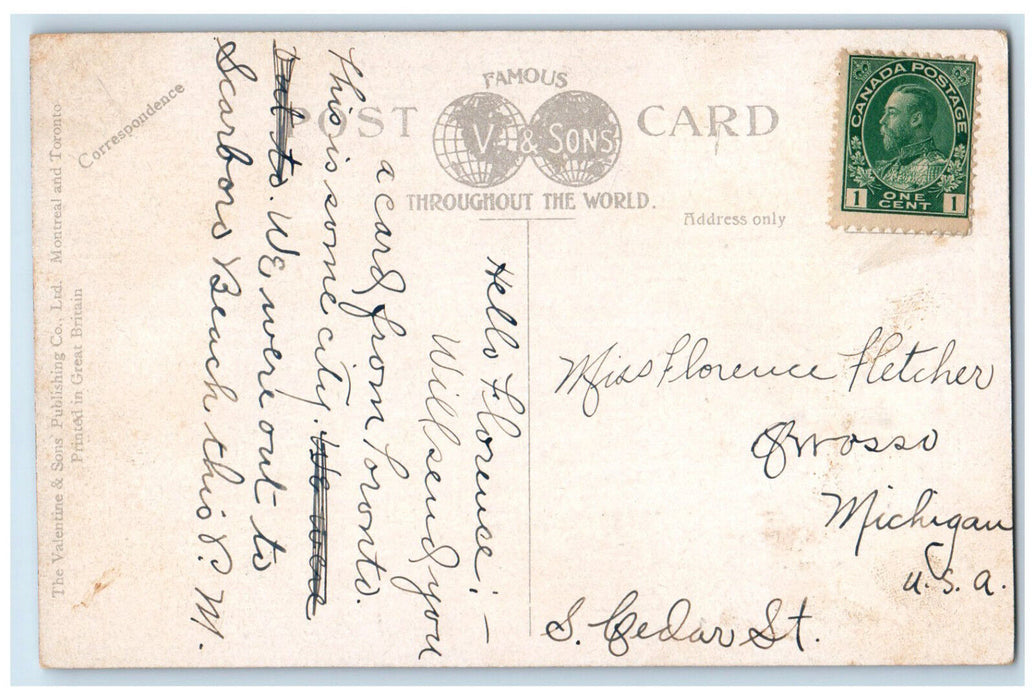 FAMOUS
POST CARD
V. & SONS
THROUGHOUT THE WORLD.
Address only
Correspondence
The Valentine & Sons Publishing Co., Ltd. Montreal and Toronto
Printed in Great Britain
CANADA POSTAGE
1 ONE CENT 1
Hello Florence; —
Will send you
a card from Toronto.
This is some city. We were
out to. We were out to
Scarboro Beach this P. M.
Miss Florence Fletcher
Owosso
Michigan
U. S. A.
S. Cedar St.